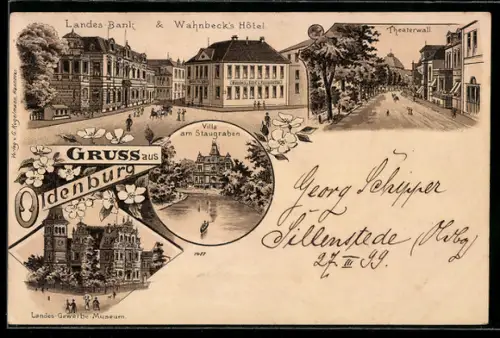 Landes-Bank & Wahnbeck's Hôtel.
Theaterwall
Villa
am Staugraben
GRUSS aus
Oldenburg
Landes-Gewerbe-Museum.
Georg Schipper
Sillenstede (Oldbg)
27. III 99.